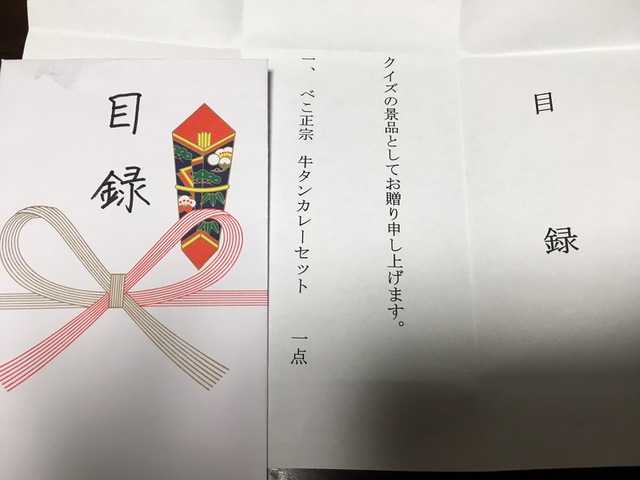 目録
目 録
クイズの景品としてお贈り申し上げます。
一、 べこ正宗 牛タンカレーセット 一点